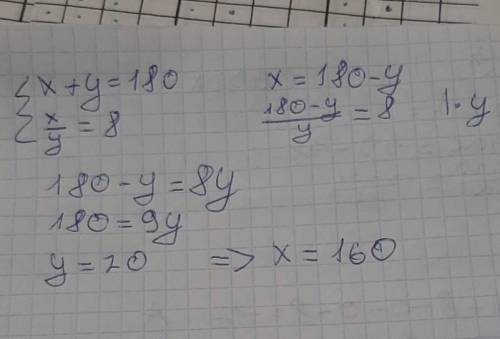 { x + y = 180
x/y = 8
x = 180 - y
(180 - y)/y = 8 | · y
180 - y = 8y
180 = 9y
y = 20 => x = 160